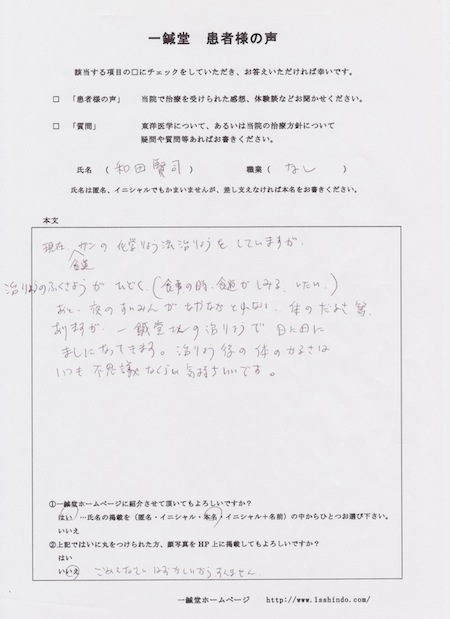 一鍼堂 患者様の声
該当する項目の□にチェックをしていただき、お答えいただければ幸いです。
□ 「患者様の声」 当院で治療を受けられた感想、体験談などお聞かせください。
□ 「質問」 東洋医学について、あるいは当院の治療方針について
疑問や質問等あればお書きください。
氏名 ( 和田 賢司 ) 職業 ( なし )
氏名は匿名、イニシャルでもかまいませんが、差し支えなければ本名をお書きください。
本文
現在、食道ガンの化学りょう法治りょうをしていますが、
治りょうのふくさようがひどく、(食事の時、食道がしみる、いたい。)
あと、夜のすいみんがなかなかとれない、体のだるさ等、
ありますが、一鍼堂さんの治りょうで日に日に
ましになってきます。治りょう後の体のかるさは
いつも不思議なくらい気持ちいいです。
①一鍼堂ホームページに紹介させて頂いてもよろしいですか?
はい …氏名の掲載を(匿名・イニシャル・本名・イニシャル+名前)の中からひとつお選び下さい。
いいえ
②上記ではいに丸をつけられた方、顔写真をHP上に掲載してもよろしいですか?
はい
いいえ ごめんなさい はずかしいからすいません。
一鍼堂ホームページ http://www.1sshindo.com/